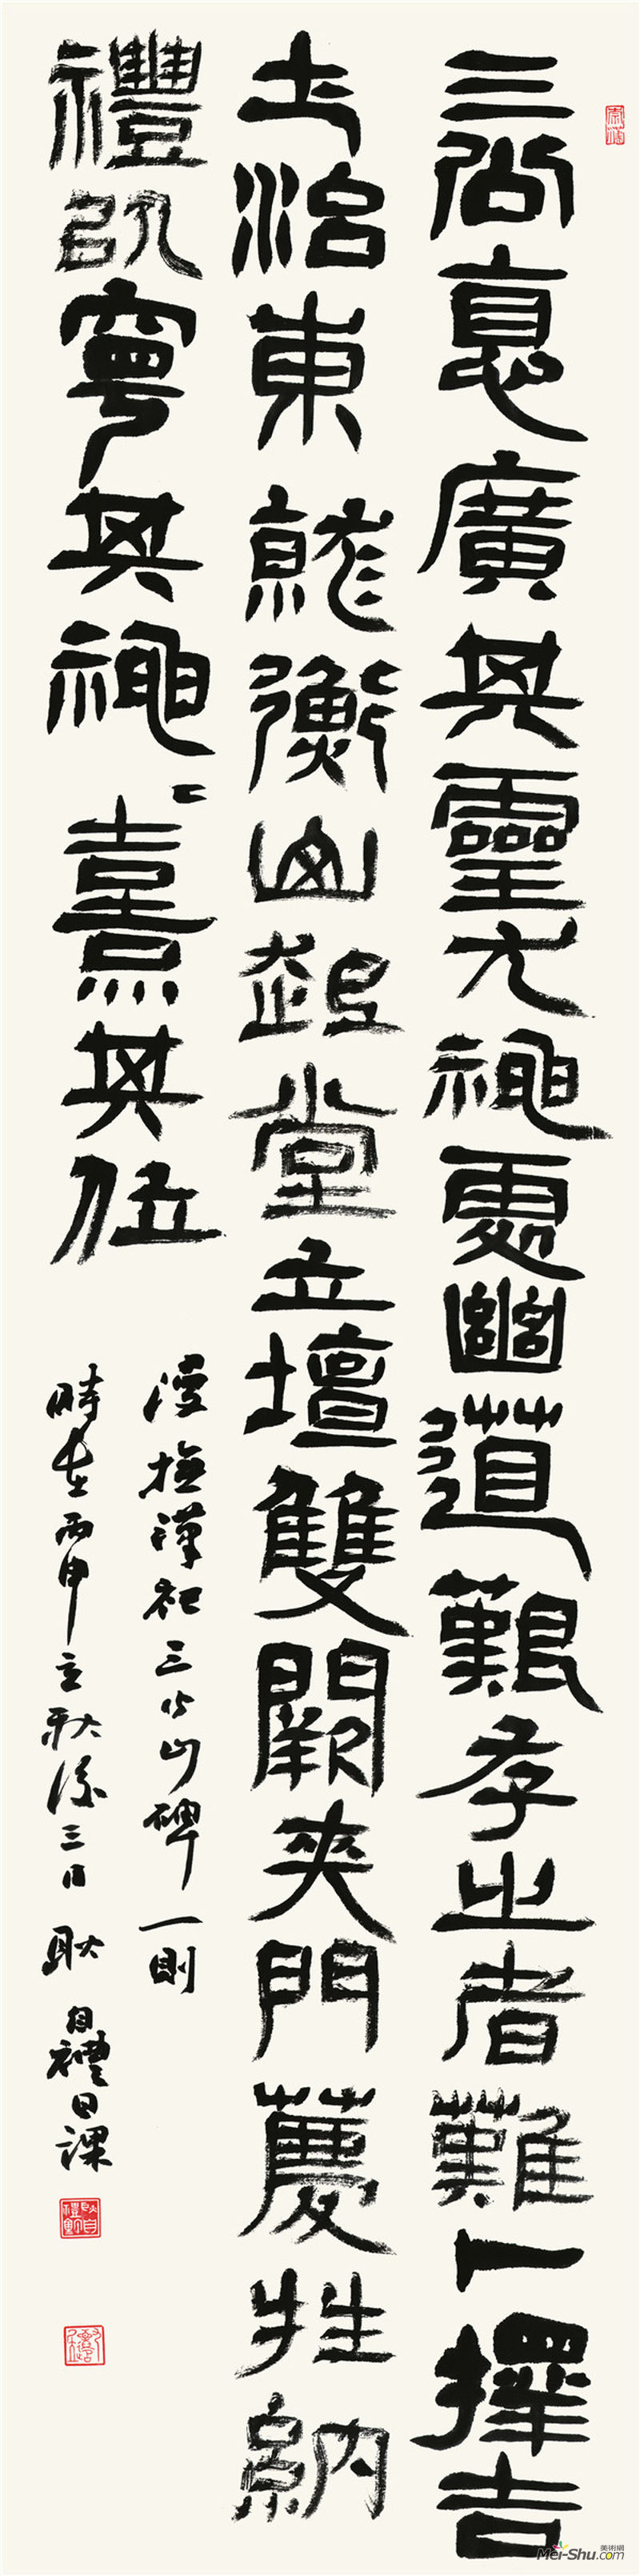 三公惪廣其靈尤神處幽道艱存之者難卜擇吉
土治東就衡山起堂立壇雙闕夾門薦牲納
禮以寧其神〻熹其位
漫撫漢祀三公山碑一則
時在丙申立秋後三日 耿自禮日課
美術網
Mei-Shu.com